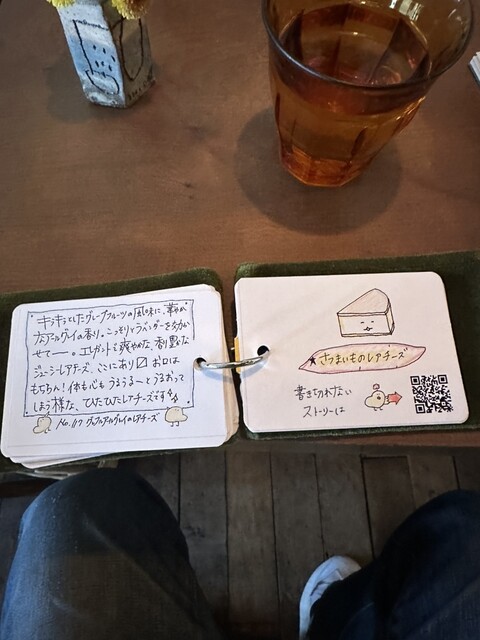 キラキラしたグレープフルーツの風味に、華やか
なアールグレイの香り。こっそりラベンダーを効か
せて——。エレガントで爽やかな、香り豊かな
ジューシーレアチーズ、ここにあり〼 お口は
もちろん！体も心もうるうる〜とうるおって
しまう様な、ひたひたレアチーズです
No.117 グレフルアールグレイのレアチーズ
★さつまいものレアチーズ
書き切れない
ストーリーは